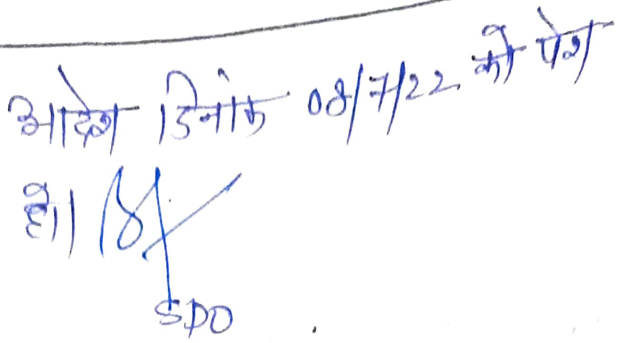 आदेश दिनांक 08/7/22 को पेश
हो।
SDO